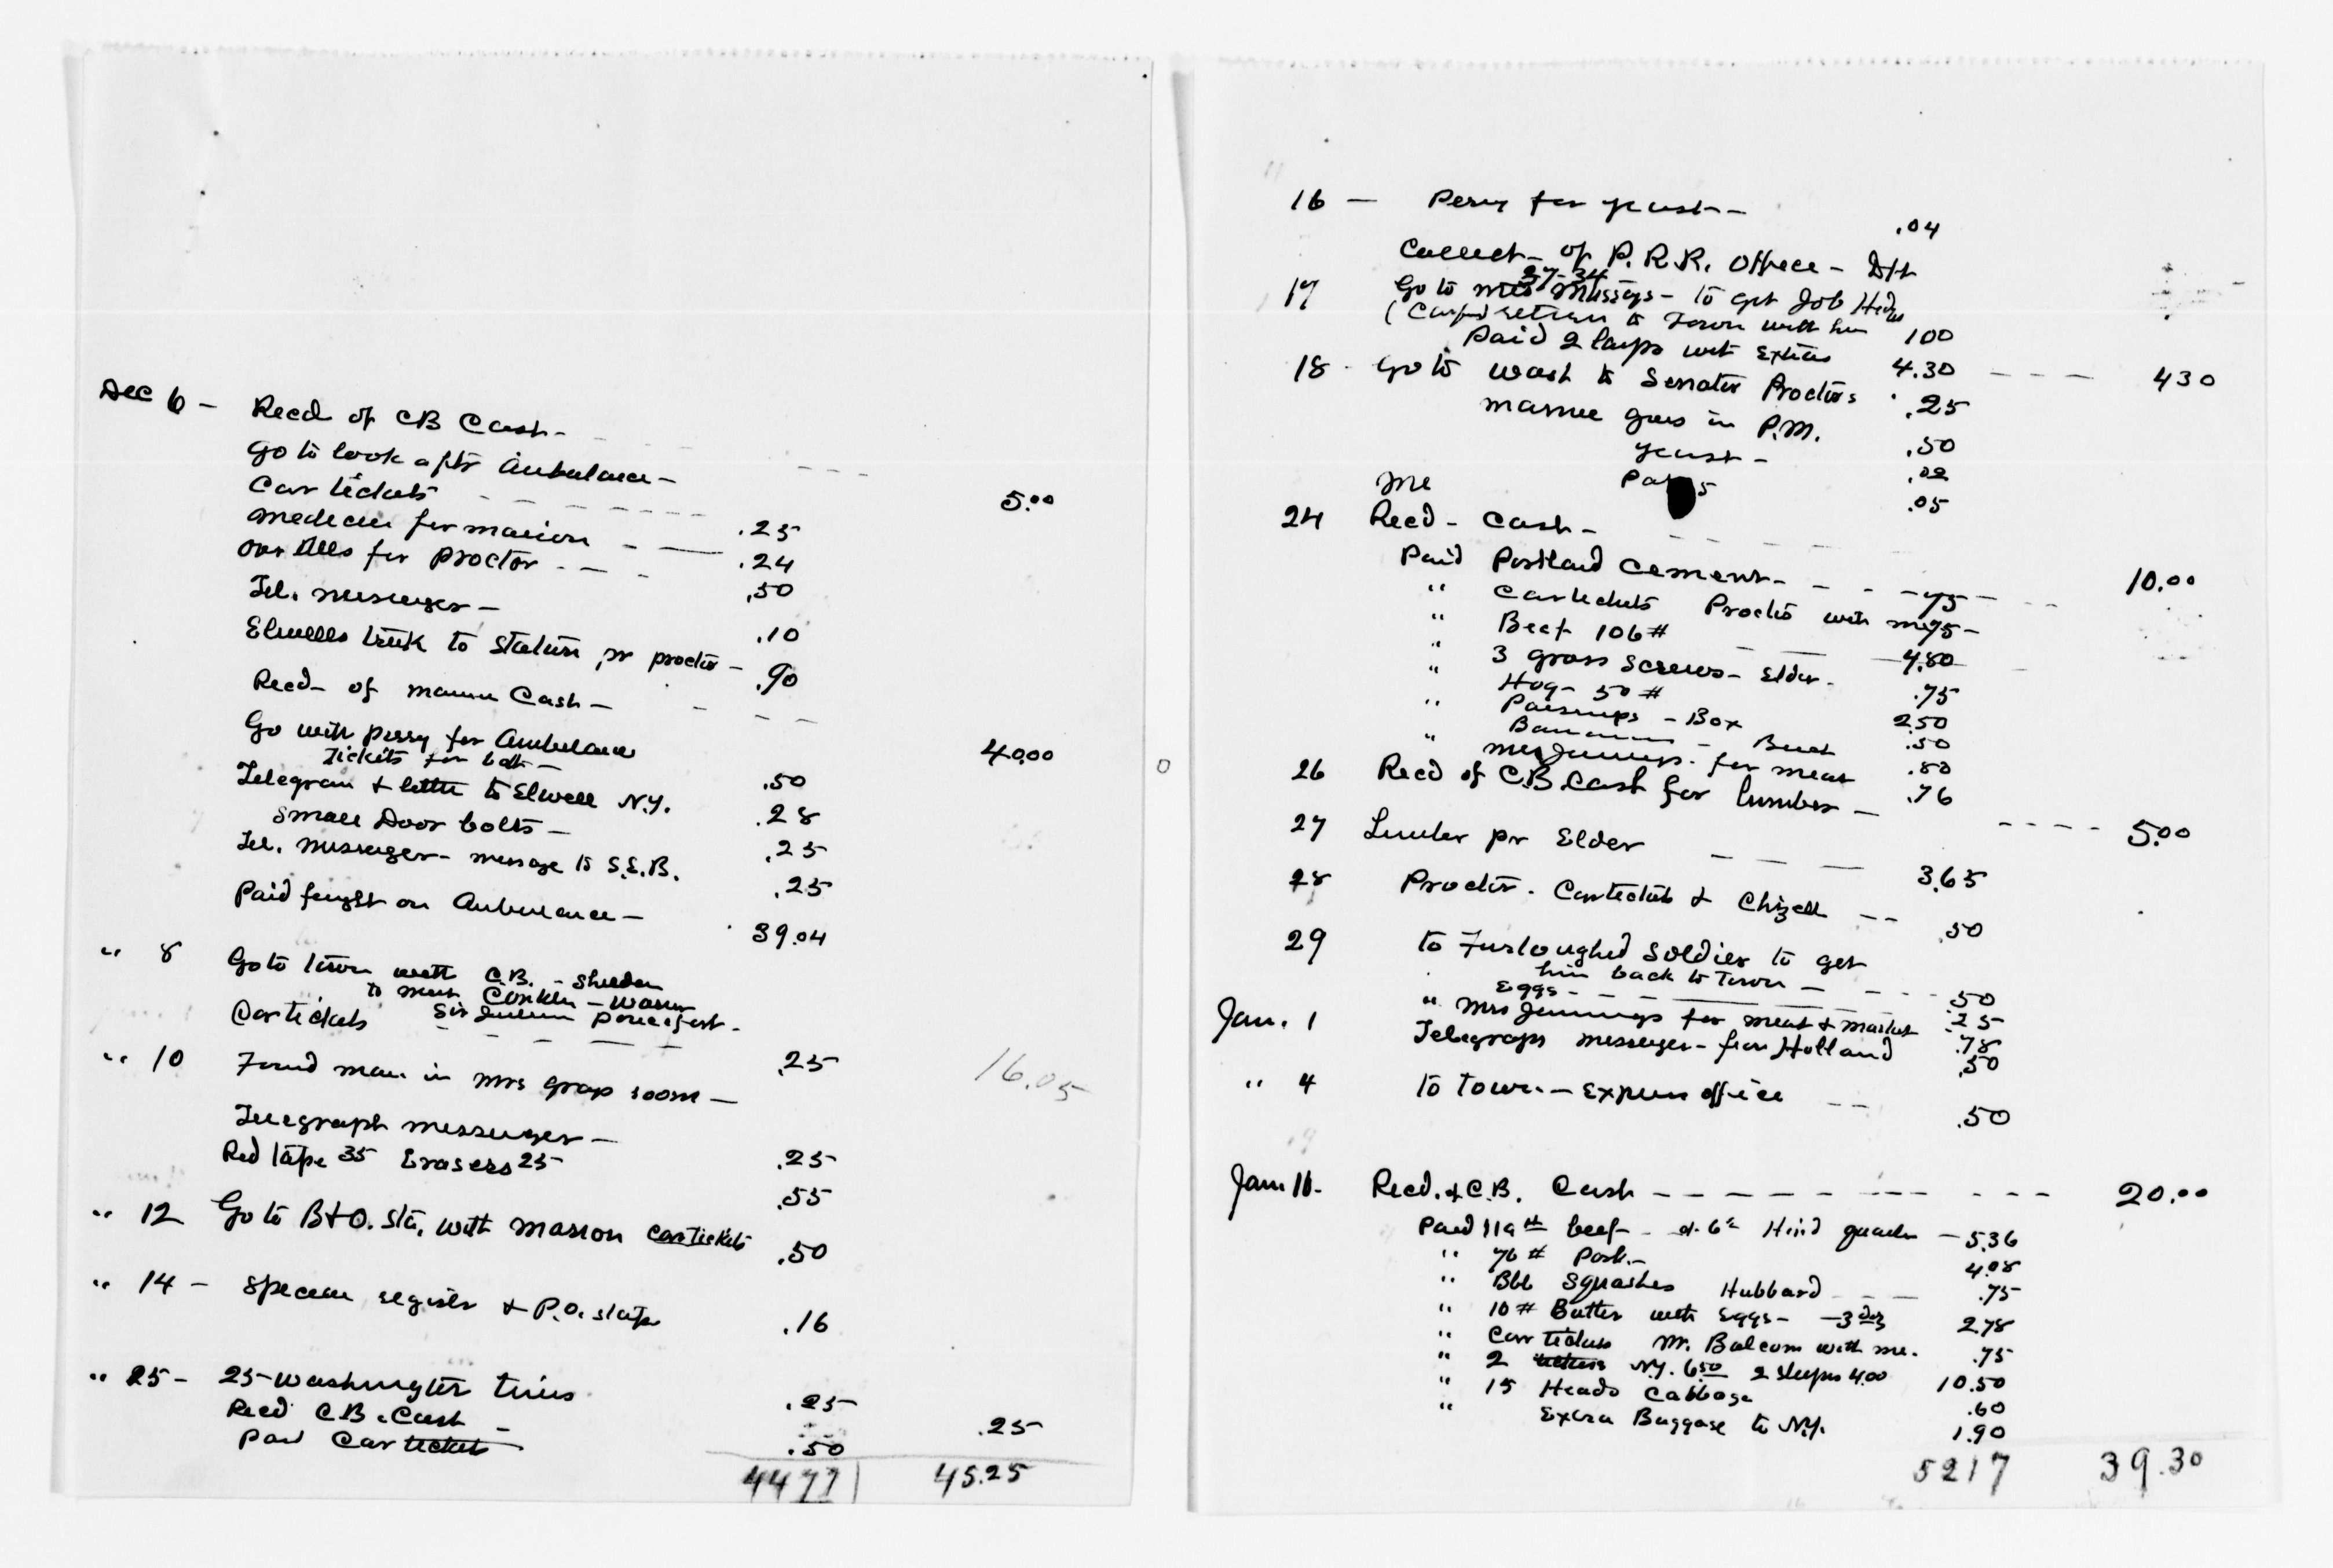 Dec 6 - Recd of CB Cash - 5.00
Go to look aftr Ambulance -
Car tickets .25
medecin for marion .24
Over Alls for Proctor .50
Tel. messenger - .10
Elwells trunk to Station pr proctor - .90
Recd - of mamie Cash - 40.00
Go with perry for Ambulance
Tickets for both - .50
Telegram & letter to Elwell N.Y. .28
Small Door bolts - .25
Tel. messenger - message to S.E.B. .25
Paid freight on Ambulance - 39.04
" 8 Go to town with C.B. - Sheldon
to meet Conklin - Warner
Sir Julian
Car tickets .25
16.05
" 10 Found man in Mrs room -
Telegraph messenger - .25
Red tape 35 Erasers 25 .55
" 12 Go to B & O. Sta. with Marion Car tickets .50
" 14 - Special & P.O. .16
" 25 - 25 Washington Times .25
Recd C.B. Cash - .25
Paid Car tickets .50
4477 45.25
16 - Perry for yeast - .04
Collect - of P.R.R. Office - Dft
37-34
17 Go to Mrs Musseys - to get Job
return to Town with him 100
Paid 2 with Extras 4.30 4 30
18 - Go to Wash to Senator Proctors .25
Mamie goes in P.M. .50
yeast -
me .05
24 Recd - Cash - 10.00
Paid Portland Cement - 75
" Car tickets Proctor with me 75 -
" Beef 106# 4.80
" 3 gross Screws - Elder - .75
" Hog - 50# 2.50
" Parsnips - Box .50
Bananas - Bunch .80
" Mrs Jennings - for meat .76
26 Recd of C.B. Cash for lumber - 5.00
27 Lumber pr Elder 3.65
28 Proctor. Car tickets & Chizell .50
29 to Furloughed Soldier to get
him back to Town - .50
Eggs - .25
" Mrs Jennings for meat & market .78
Jan. 1 Telegraph messenger - from Holland .50
" 4 to town - Express office .50
Jan 11. Recd. of C.B. Cash 20.00
Paid 119# beef - at 6c Hind quarter - 5.36
" 76# Pork - 4.08
" Bbl Squashes Hubbard .75
" 10# Butter with Eggs - 3 doz 2.78
" Car tickets Mr. Balcom with me. .75
" 2 tickets N.Y. 6.50 2 sleeps 4.00 10.50
" 15 Heads Cabbage .60
" Extra Baggage to N.Y. 1.90
5217 39.30